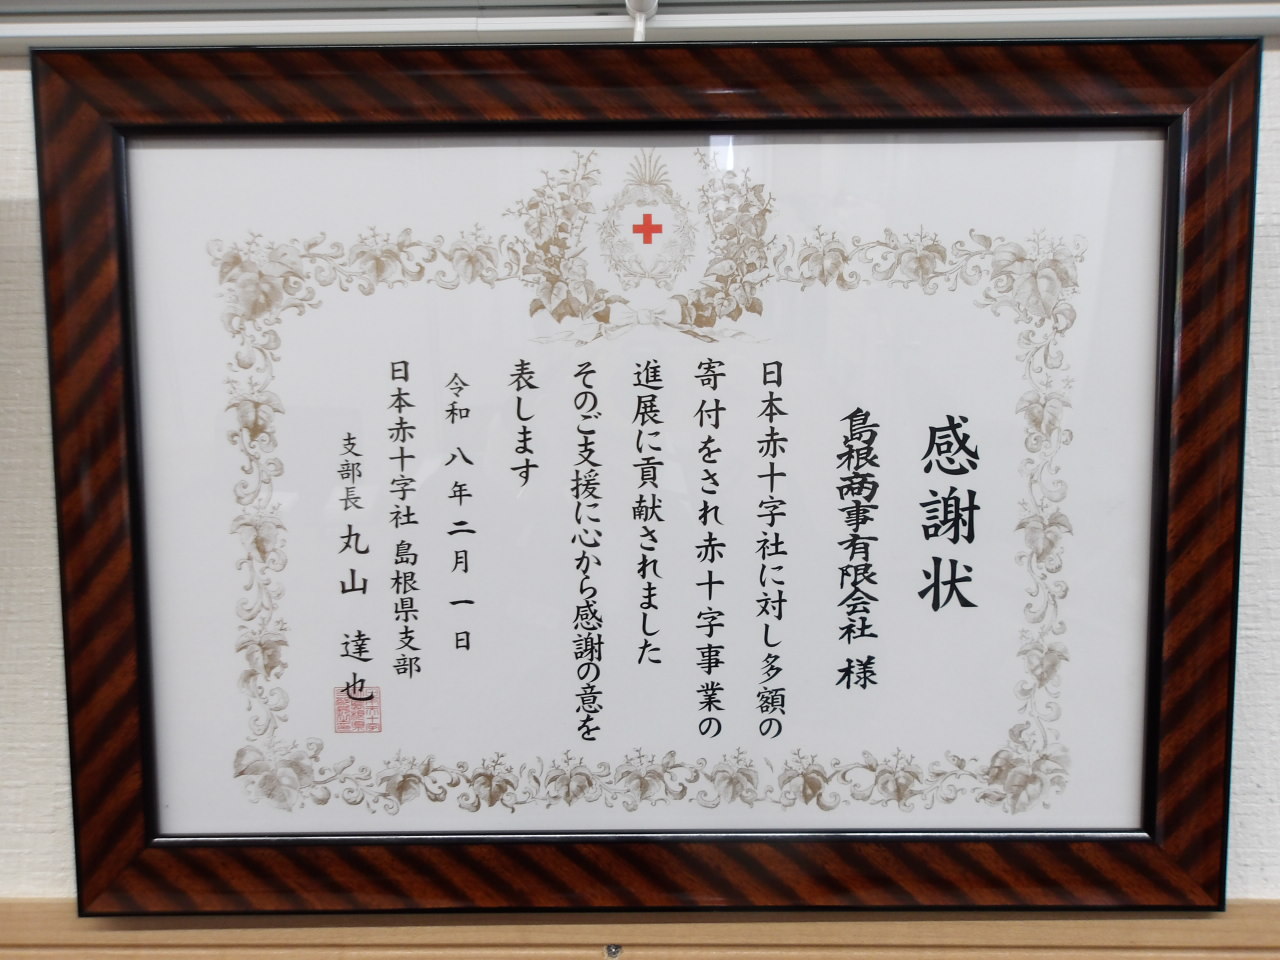 感謝状
島根商事有限会社 様
日本赤十字社に対し多額の
寄付をされ赤十字事業の
進展に貢献されました
そのご支援に心から感謝の意を
表します
令和八年二月一日
日本赤十字社 島根県支部
支部長 丸山 達也